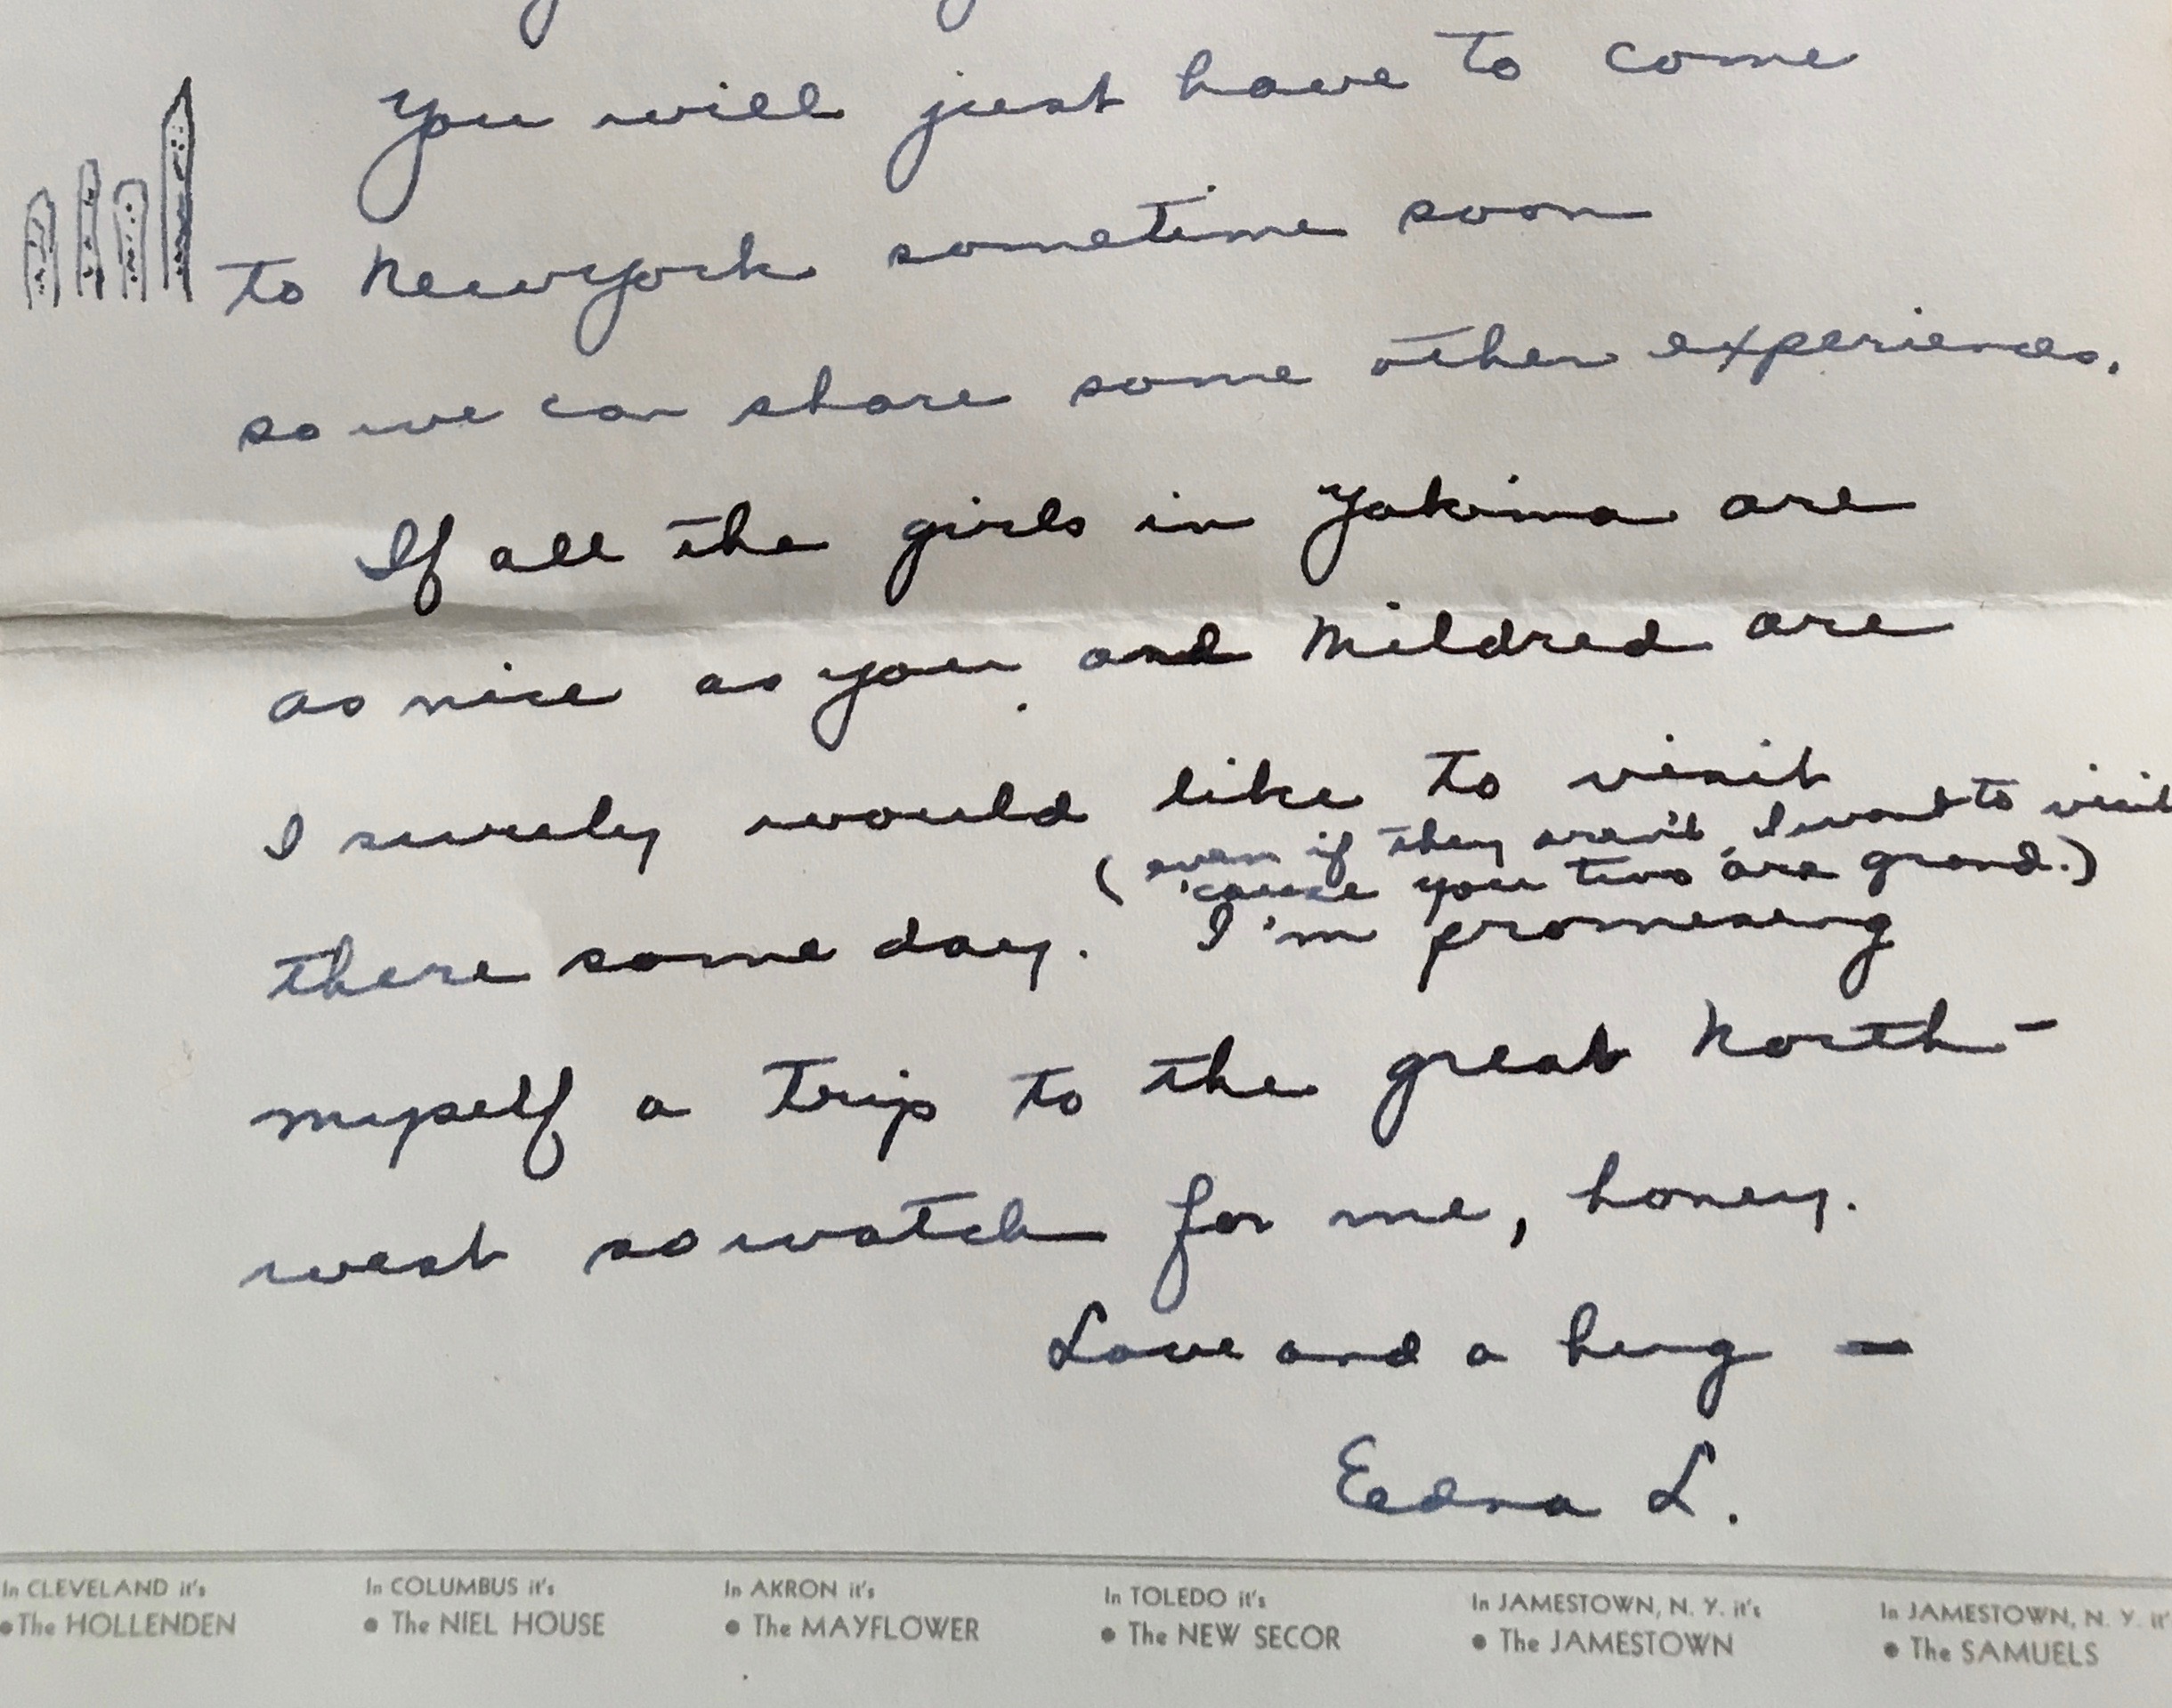 You will just have to come
to New York sometime soon
so we can share some other experiences.
If all the girls in Yakima are
as nice as you and Mildred are
I surely would like to visit
(even if they aren't, I want to visit
'cause you two are grand.)
there some day. I'm promising
myself a trip to the great North-
west so watch for me, honey.
Love and a hug —
Edna L.
In CLEVELAND it's
• The HOLLENDEN
In COLUMBUS it's
• The NIEL HOUSE
In AKRON it's
• The MAYFLOWER
In TOLEDO it's
• The NEW SECOR
In JAMESTOWN, N. Y. it's
• The JAMESTOWN
In JAMESTOWN, N. Y. it'
• The SAMUELS